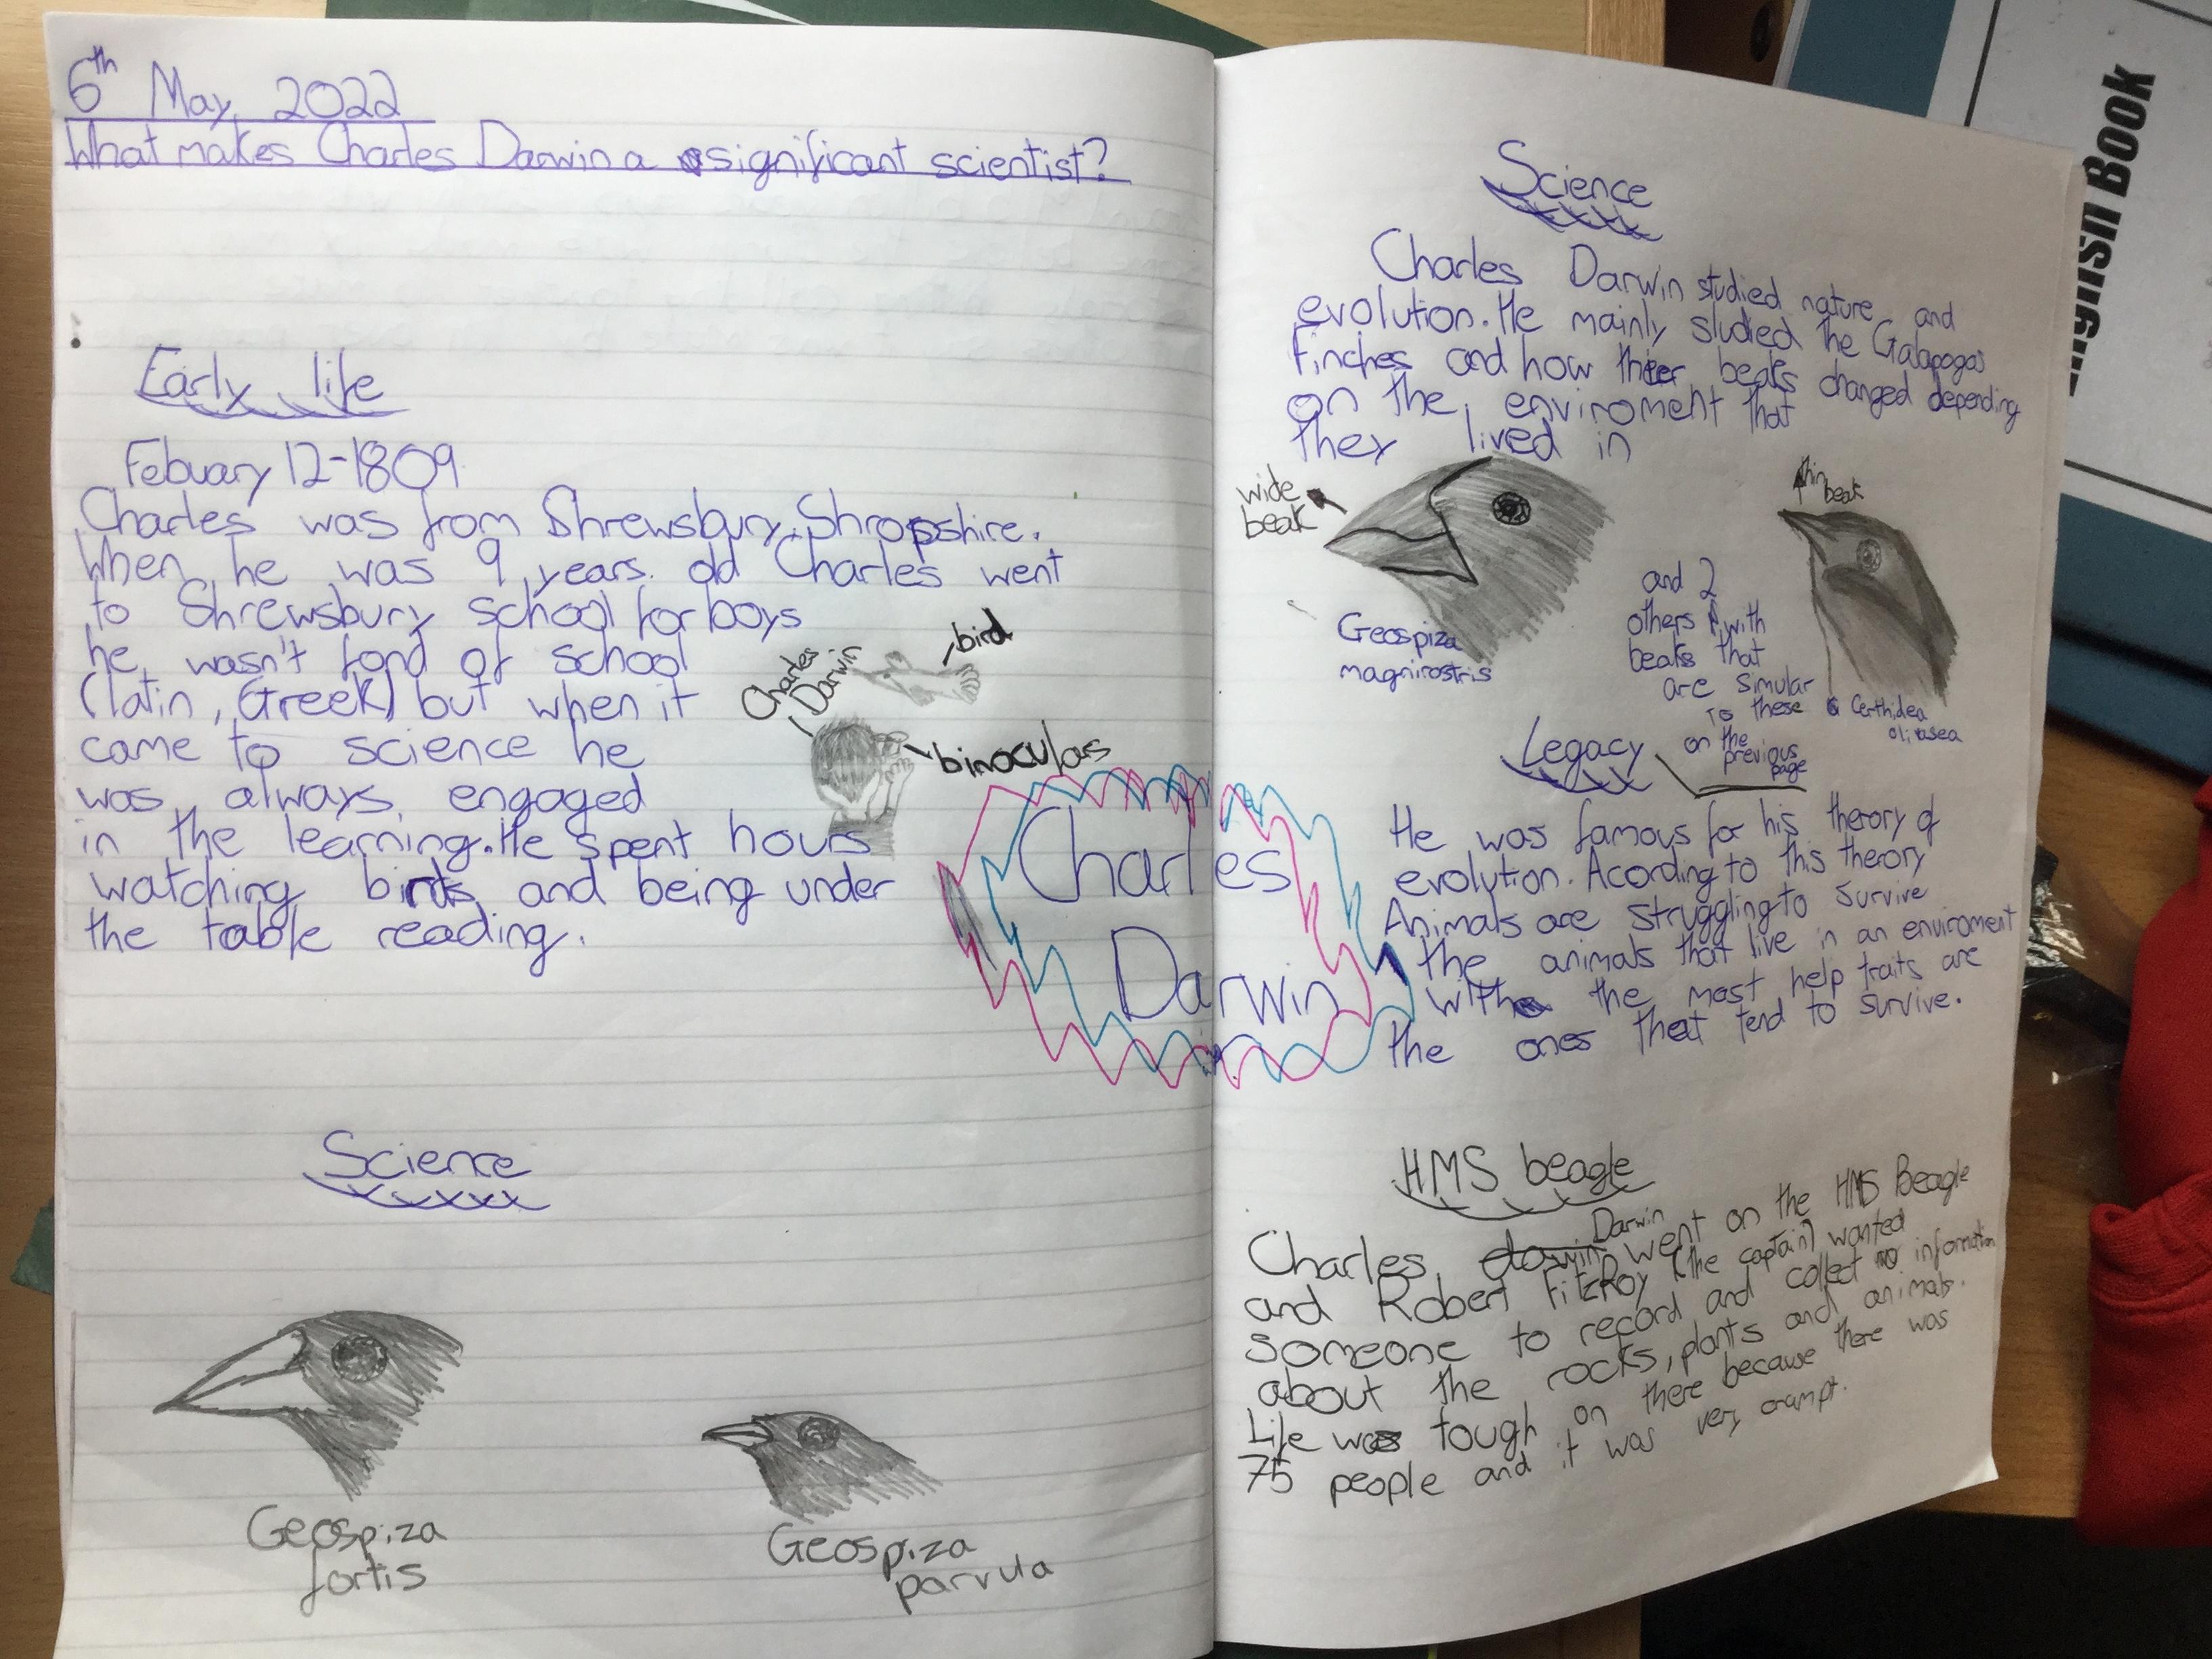 6th May 2022
What makes Charles Darwin a significant scientist?
Early life
Febuary 12-1809
Charles was from Shrewsbury, Shropshire.
When he was 9 years old Charles went
to Shrewsbury school for boys
he wasn't fond of school
(latin, Greek) but when it
came to science he
was always engaged
in the learning. He spent hours
watching birds and being under
the table reading.
Charles
Darwin
bird
binoculars
Charles
Darwin
Science
Geospiza
fortis
Geospiza
parvula
Science
Charles Darwin studied nature and
evolution. He mainly studied the Galapogas
Finches and how thier beaks changed depending
on the enviroment that
they lived in
wide
beak
thin
beak
Geospiza
magnirostris
and 2
others with
beaks that
are simular
to these
on the
previous
page
Certhidea
olivasea
Legacy
He was famous for his therory of
evolution. Acording to this therory
Animals are struggling to survive
the animals that live in an enviroment
with the most help traits are
the ones that tend to survive.
HMS beagle
Charles Darwin went on the HMS Beagle
and Robert FitzRoy (the captain) wanted
someone to record and collect information
about the rocks, plants and animals.
Life was tough on there because there was
75 people and it was very crampt.
English Book